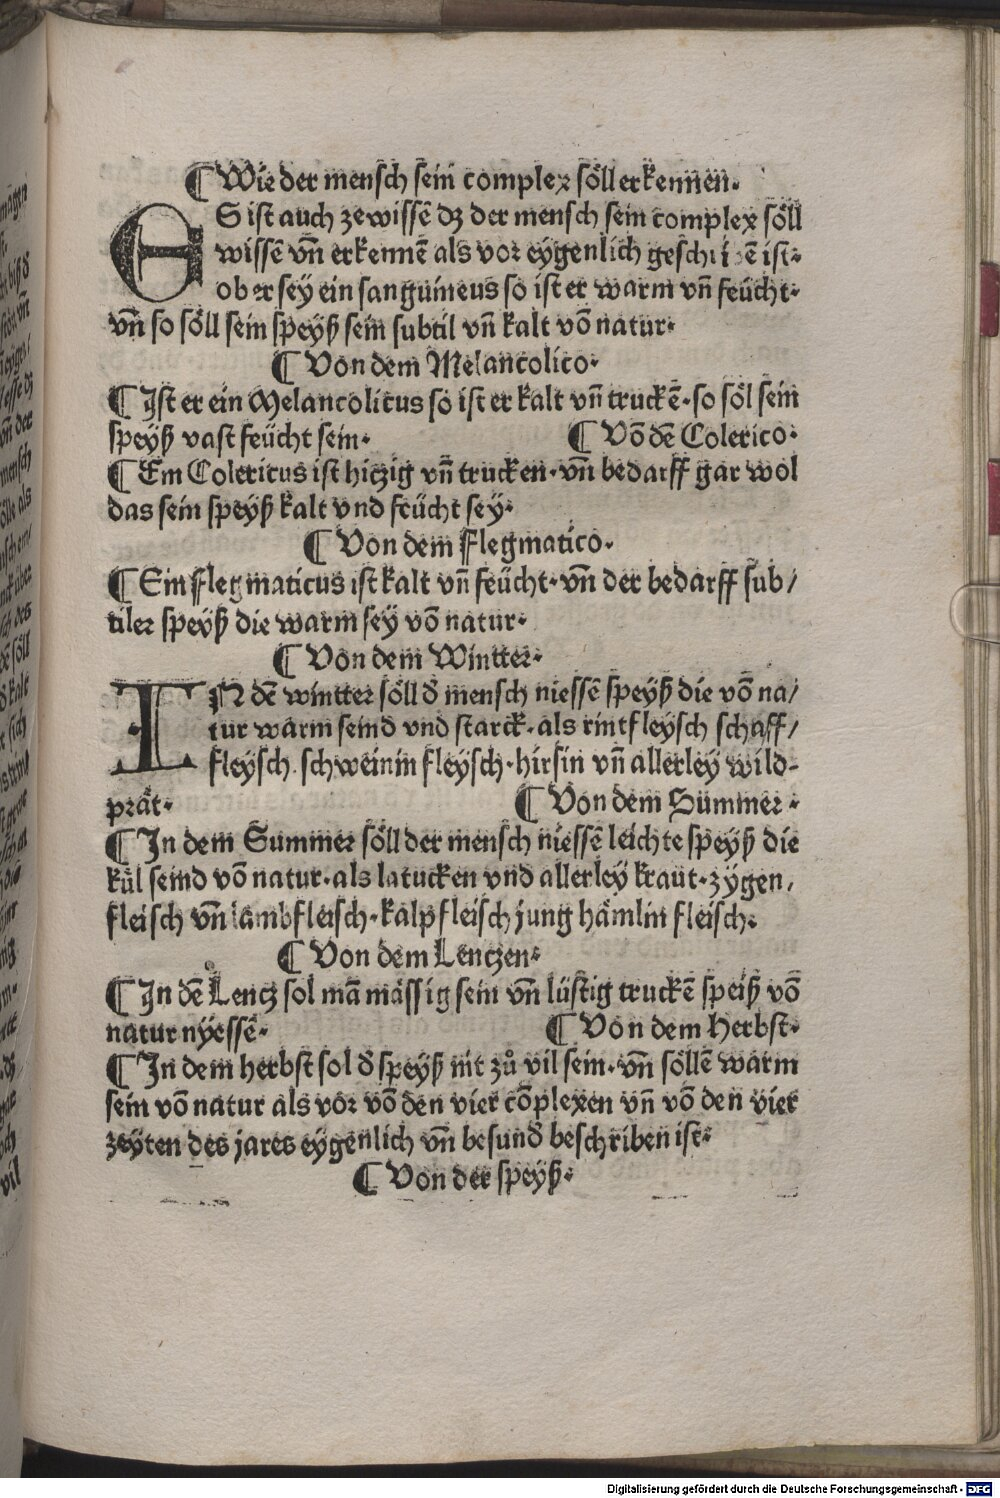 ¶ Wie der mensch sein complex söll erkennen.
ES ist auch ze wissē dz der mensch sein complex söll
wissē vn̄ erkennē als vor eygenlich geschribē ist.
ob er sey ein sanguineus so ist er warm vn̄ feücht.
vn̄ so söll sein speyß sein subtil vn̄ kalt vō natur.
¶ Von dem Melancolico.
¶ Ist er ein Melancolicus so ist er kalt vn̄ truckē. so söl sein
speyß vast feücht sein. ¶ Vō dē Colerico.
¶ Ein Colericus ist hiczig vn̄ trucken. vn̄ bedarff gar wol
das sein speyß kalt vnd feücht sey.
¶ Von dem Flegmatico.
¶ Ein Flegmaticus ist kalt vn̄ feücht. vn̄ der bedarff sub/
tiler speyß die warm sey vō natur.
¶ Von dem Wintter.
IN dē wintter söll d̄ mensch niessē speyß die vō na/
tur warm seind vnd starck. als rintfleysch schaff/
fleysch. schweinin fleysch. hirsin vn̄ allerley wild-
prät. ¶ Von dem Summer.
¶ In dem Summer söll der mensch niessē leichte speyß die
kůl seind vō natur. als latucken vnd allerley kraut. zygen/
fleisch vn̄ lambfleisch. kalpfleisch jung hämlin fleisch.
¶ Von dem Lenczen.
¶ In dē Lencz sol mā mässig sein vn̄ lüstig truckē speiß vō
natur nyessē. ¶ Von dem herbst.
¶ In dem herbst sol d̄ speyß nit zů vil sein. vn̄ söllē warm
sein vō natur als vor vō den vier cōplexen vn̄ vō den vier
zeyten des jares eygenlich vn̄ besund̄ beschriben ist.
¶ Von der speyß.
Digitalisierung gefördert durch die Deutsche Forschungsgemeinschaft - DFG